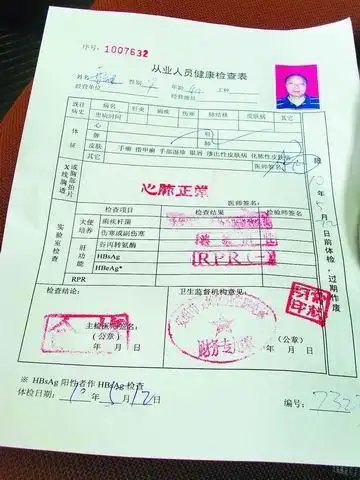 序号：1007632
从业人员健康检查表
姓名 性别 年龄 工种
经营单位 经营地址
既往病史 病名 肝炎 痢疾 伤寒 肺结核 皮肤病 其它
患病时间
体征 心 肝
脾 肺
皮肤 手癣 指甲癣 手部湿疹 银屑 渗出性皮肤病 化脓性皮肤病
其它
X线胸透或胸部拍片
心肺正常
医师签名：
实验室检查 检查项目 检查结果 检验师签名
大便培养 痢疾杆菌
伤寒或副伤寒
肝功能 谷丙转氨酶
HBsAg
HBeAg*
RPR
RPR(-)
检查结论： 卫生监督机构意见：
主检医师签名：
(公章) (公章)
年 月 日 年 月 日
财务专用章
限 年 月 日前体检，过期作废
※ HBsAg 阳性者作 HBsAg 检查
体检日期： 年 5月12日
编号：2323